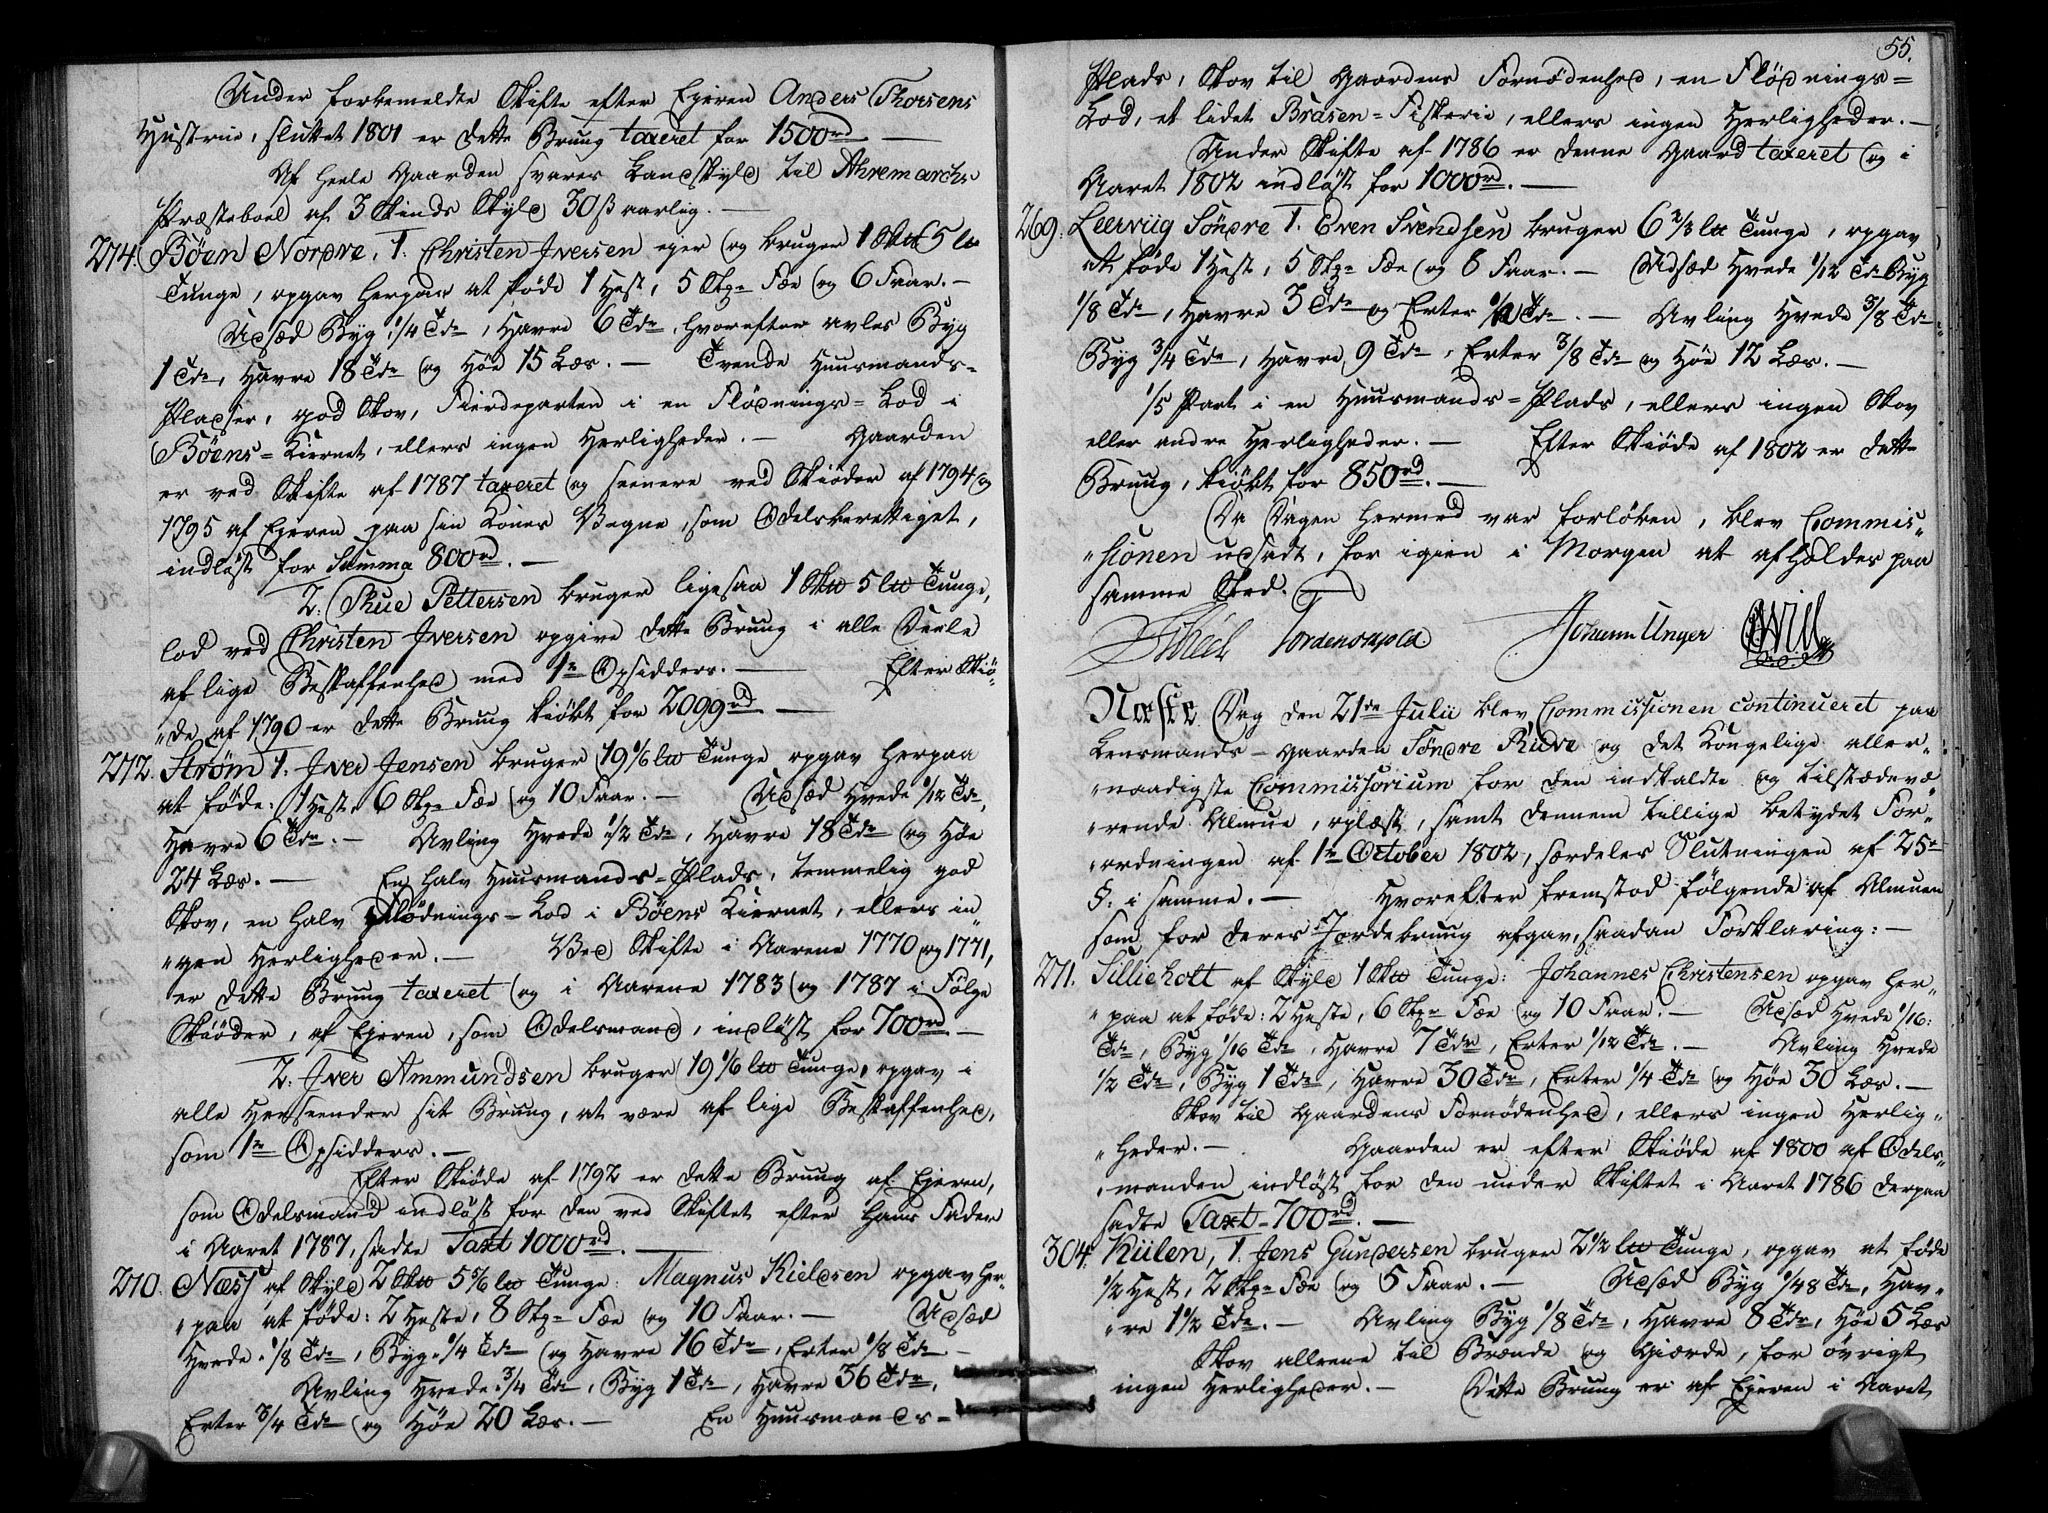 Under forbemeldte Skifte efter Ejeren Anders Thorsens
Hustrue, sluttet 1801 er dette Brug taxeret for 1500rd.—
Af heele Gaarden svares Landskyld til Ahremarchs
Præsteboel af 3 Skinds Skyld 30ß aarlig.—
274. Böen Nordre, 1. Christen Jversen eger og bruger 1 Sk℔ 5 l℔
Tunge, opgav herpaa at föde 1 Hest, 5 Stkr Fæe og 6 Faar.—
Udsæd Byg 1/4 Tdr, Havre 6 Tdr, hvorefter avles Byg
1 Tdr, Havre 18 Tdr og Höe 15 Læs.— Tvende Huusmands-
Pladser, god Skov, Fierdeparten i en Flödnings= Lod i
Böens= Kiernet, ellers ingen Herligheder.— Gaarden
er ved Skifte af 1787 taxeret og seenere ved Skiöder af 1794 og
1795 af Ejeren paa sin Kones Vegne, som Odelsberettiget,
indlöst for Summa 800rd.—
2. Thue Pettersen bruger ligesaa 1 Sk℔ 5 l℔ Tunge,
lod ved Christen Jversen opgive dette Brug i alle Deele
af lige Beskaffenhed med 1te Opsidders.— Efter Skiö-
"de af 1790 er dette Brug kiöbt for 2099rd.—
272. Ström 1. Jver Jensen bruger 19 1/6 l℔ Tunge opgav herpaa
at föde: 1 Hest, 6 Stkr Fæe og 10 Faar.— Udsæd Hvede 1/12 Tdr,
Havre 6 Tdr.— Avling Hvede 1/2 Tdr, Havre 18 Tdr og Höe
24 Læs.— En halv Huusmands=Plads, temmelig god
Skov, en halv Flödnings=Lod i Böens Kiernet, ellers in-
"gen Herligheder.— Ved Skifte i Aarene 1770 og 1771,
er dette Brug taxeret og i Aarene 1783 og 1787 i Fölge
Skiöder, af Ejeren, som Odelsmand, indlöst for 700rd.—
2. Jver Ammundsen bruger 19 1/6 l℔ Tunge, opgav i
alle Henseender sit Brug, at være af lige Beskaffenhed,
som 1te Opsidders.—
Efter Skiöde af 1792 er dette Brug af Ejeren,
som Odelsmand indlöst for den ved Skiftet efter hans Fader
i Aaret 1787, satte Taxt 1000rd.—
270. Næss af Skyld 2 Sk℔ 5 5/6 l℔ Tunge: Magnus Kieldsen opgav her-
"paa at föde: 2 Heste, 8 Stkr Fæe og 10 Faar.— Udsæd
Hvede 1/8 Tdr, Byg 1/4 Tdr og Havre 16 Tdr, Erter 1/8 Tdr—
Avling Hvede 3/4 Tdr, Byg 1 Tdr, Havre 36 Tdr,
Erter 3/4 Tdr og Höe 20 Læs.— En Huusmands=
55.
Plads, Skov til Gaardens Fornödenhed, en Flödnings=
Lod, et lidet Brasen=Fiskerie, ellers ingen Herligheder.—
Under Skifte af 1786 er denne Gaard taxeret og i
Aaret 1802 indlöst for 1000rd.—
269. Leerviig Söndre 1. Even Svendsen bruger 6 2/3 l℔ Tunge, opgav
at föde 1 Hest, 5 Stkr Fæe og 6 Faar.— Udsæd Hvede 1/12 Tdr Byg
1/8 Tdr, Havre 3 Tdr og Erter 1/12 Tdr.— Avling Hvede 3/8 Tdr
Byg 3/4 Tdr, Havre 9 Tdr, Erter 3/8 Tdr og Höe 12 Læs.—
1/5 Part i en Huusmands=Plads, ellers ingen Skov
eller andre Herligheder.— Efter Skiöde af 1802 er dette
Brug, kiöbt for 850rd.—
Da Dagen hermed var forlöben, blev Commis-
"sionen udsadt, for igien i Morgen at afholdes paa
samme Sted.—
Tordenskjold. Johann Unger
Næste Dag den 21de Julii blev Commissionen continueret paa
Lensmands-Gaarden Söndre Riive og det Kongelige aller-
"naadigste Commissorium for den indkaldte og tilstædevæ
"rende Almue, oplæst, samt dennem tillige betydet For-
"ordningen af 1te October 1802, særdeles Slutningen af 25de
§. i samme.— Hvorefter fremstod fölgende af Almuen
som for deres Jordebrug afgav saadan Forklaring:—
271. Sillieholt af Skyld 1 Sk℔ Tunge: Johannes Christensen opgav her-
"paa at föde: 2 Heste, 6 Stkr Fæe og 10 Faar.— Udsæd Hvede 1/16:
Tdr, Byg 1/16 Tdr, Havre 7 Tdr, Erter 1/12 Tdr.— Avling Hvede
1/2 Tdr, Byg 1 Tdr, Havre 30 Tdr, Erter 1/4 Tdr og Höe 30 Læs.—
Skov til Gaardens Fornödenhed, ellers ingen Herlig-
"heder.— Gaarden er efter Skiöde af 1800 af Odels-
"manden indlöst for den under Skiftet i Aaret 1786 derpaa
satte Taxt 700rd.—
304. Kiilen, 1. Jens Gundersen bruger 2 1/2 l℔ Tunge, opgav at föde
1/2 Hest, 2 Stkr Fæe og 5 Faar.— Udsæd Byg 1/48 Tdr, Hav-
"re 1 1/2 Tdr.— Avling Byg 1/8 Tdr, Havre 8 Tdr, Höe 5 Læs
Skov alleene til Brænde og Gierde, for övrigt
ingen Herligheder.— Dette Brug er af Ejeren i Aaret